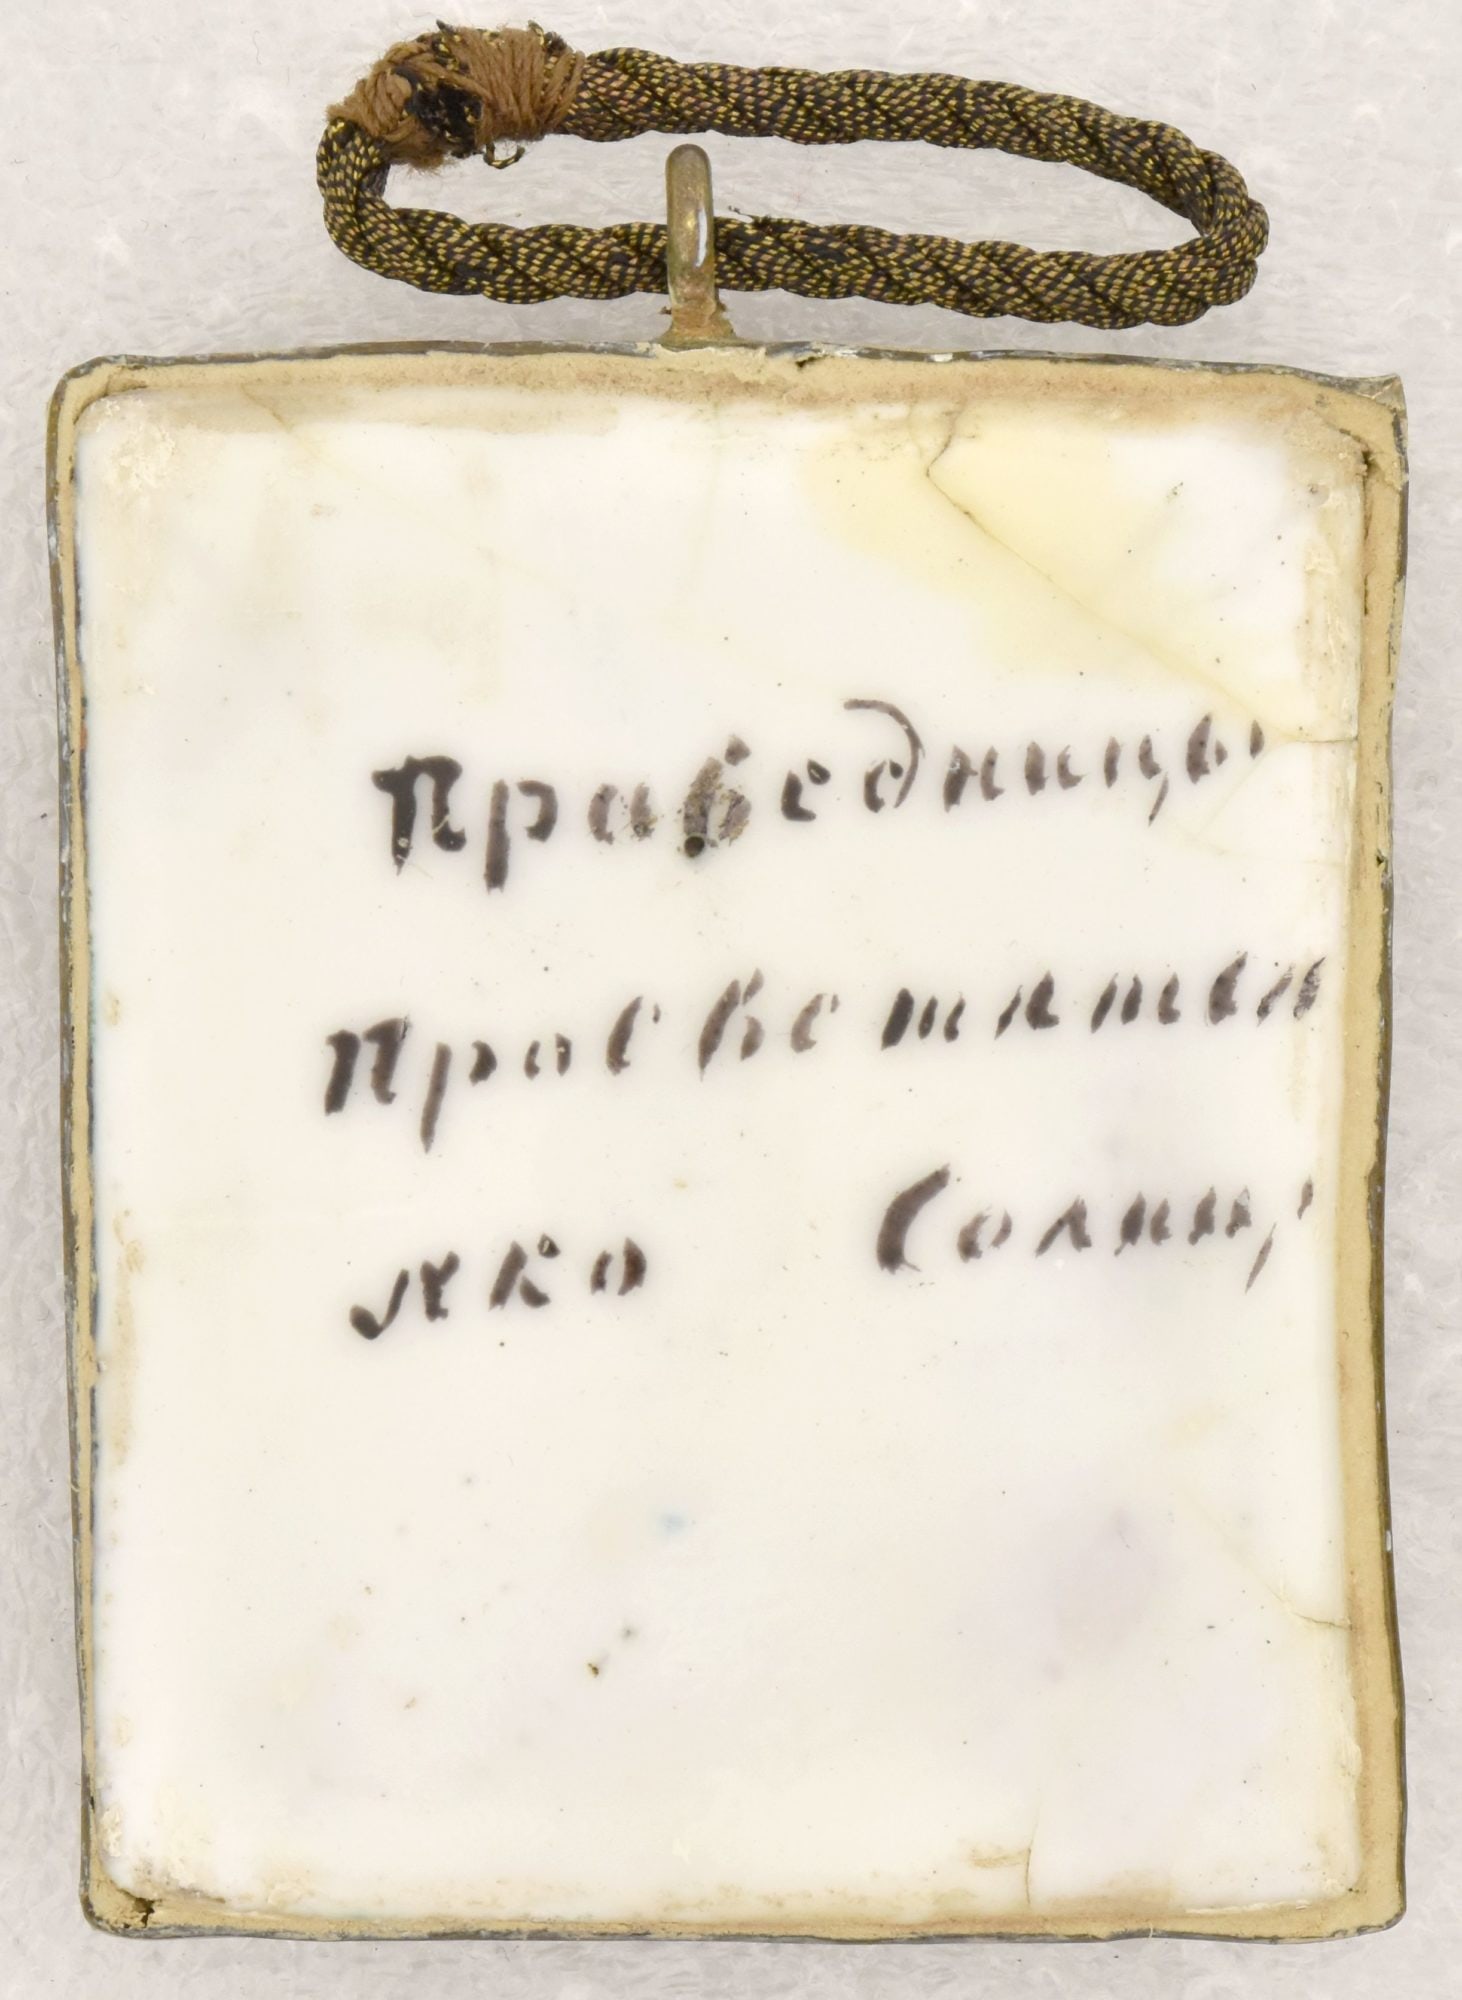 Праведницы
Просветятся
яко Солнц